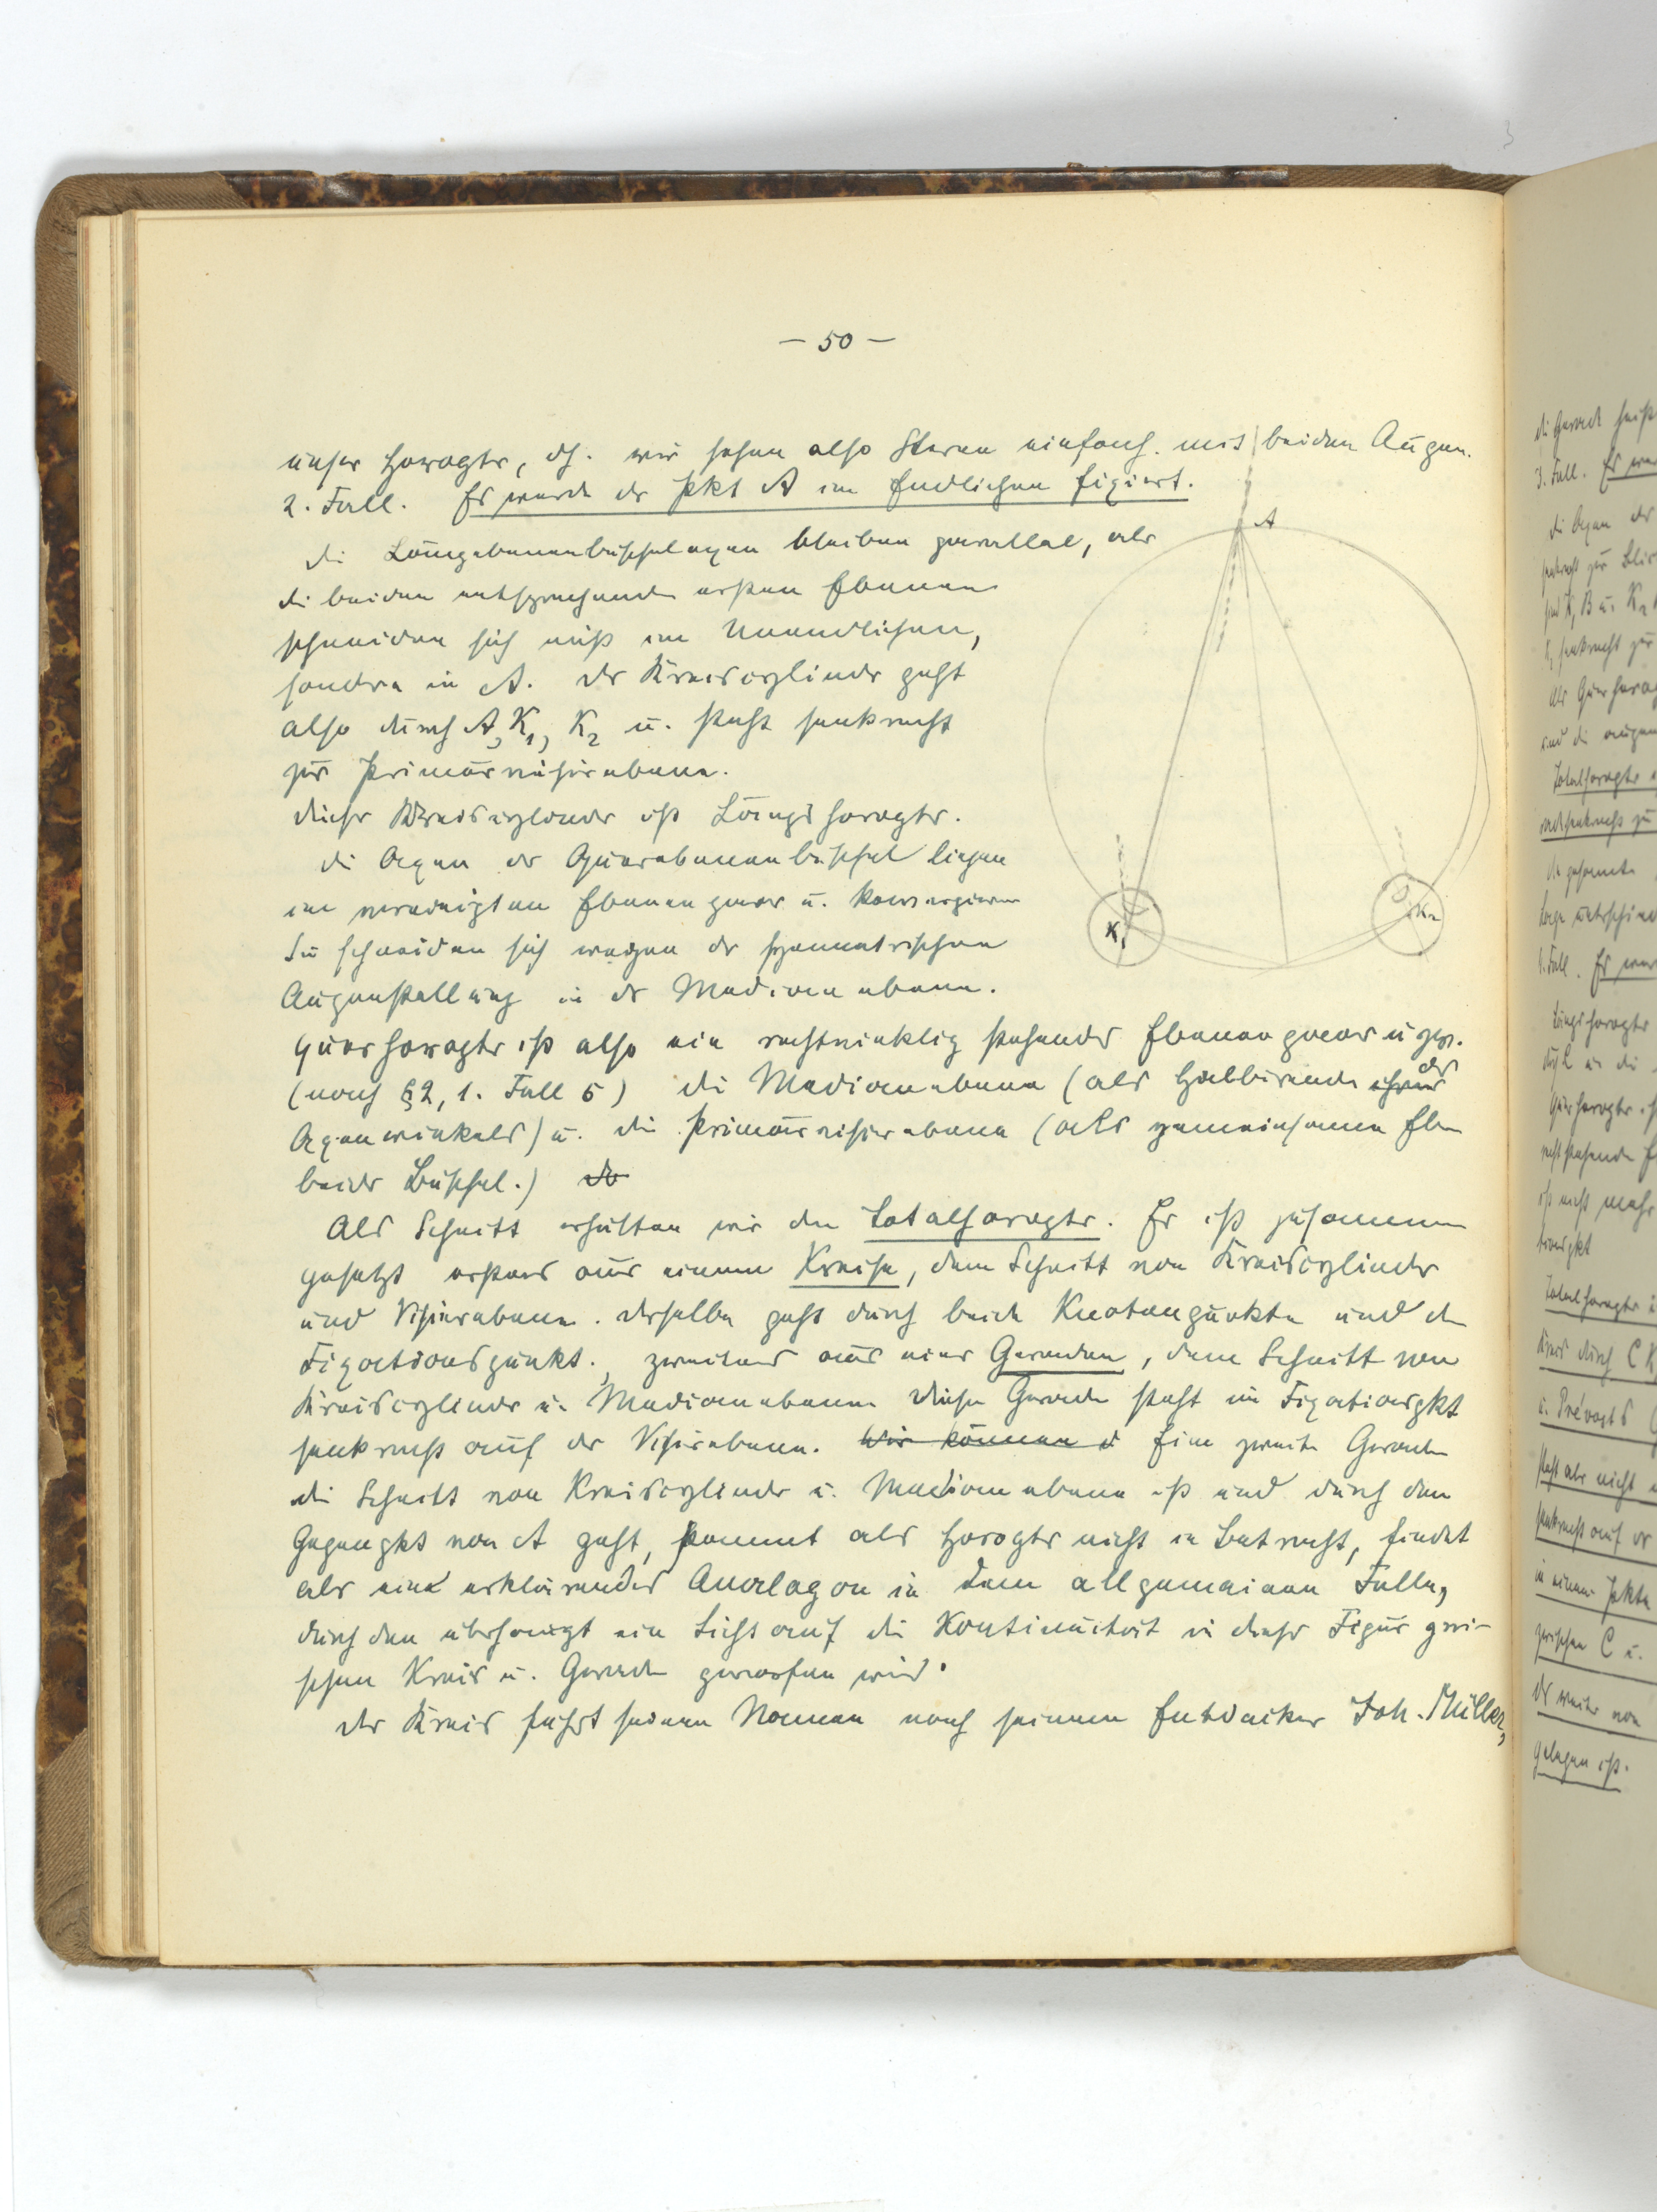 – 50 –
unser Horopter, dh. wir sehen also Sterne einfach mit beiden Augen.
2. Fall. Es werde der Pkt A im Endlichen fixiert.
A
Die Längsebenenbüschelaxen bleiben parallel, aber
die beiden entsprechenden ersten Ebenen
schneiden sich nicht im Unendlichen,
sondern in A. Der Kreiscylinder geht
also durch A, K1, K2 u. steht senkrecht
zur Primärvisierebene.
Dieser Kreiscylinder ist Längshoropter.
Die Axen der Querebenenbüschel liegen
im vereinigten Ebenenpaar u. konvergieren
K1
K2
Sie schneiden sich wegen der symmetrischen
Augenstellung in der Medianebene.
Querhoropter ist also ein rechtwinklig stehendes Ebenenpaar u zw.
(nach §2, 1. Fall 5) die Medianebene (als Halbierende der
Axenwinkels) u. die Primärvisierebene (als gemeinsame Eben
beider Büschel.)
Als Schnitt erhalten wir den Totalhoropter. Er ist zusammen
gesetzt erstens aus einem Kreise, dem Schnitt von Kreiscylinder
und Visierebene. Derselbe geht durch beide Knotenpunkte und den
Fixationspunkt., zweitens aus einer Geraden, dem Schnitt von
Kreiscylinder u. Medianebene. Diese Gerade steht im Fixationspkt
senkrecht auf der Visierebene. Wir können d Eine zweite Gerade
die Schnitt von Kreiscylinder u. Medianebene ist und durch den
Gegenpkt von A geht, kommt als Horopter nicht in Betracht, findet
aber ein erklärendes Analagon in dem allgemeinen Falle,
durch den überhaupt ein Licht auf die Kontinuität in dieser Figur zwi-
schen Kreis u. Gerade geworfen wird.
Der Kreis führt seinen Namen nach seinem Entdecker Joh. Müller,